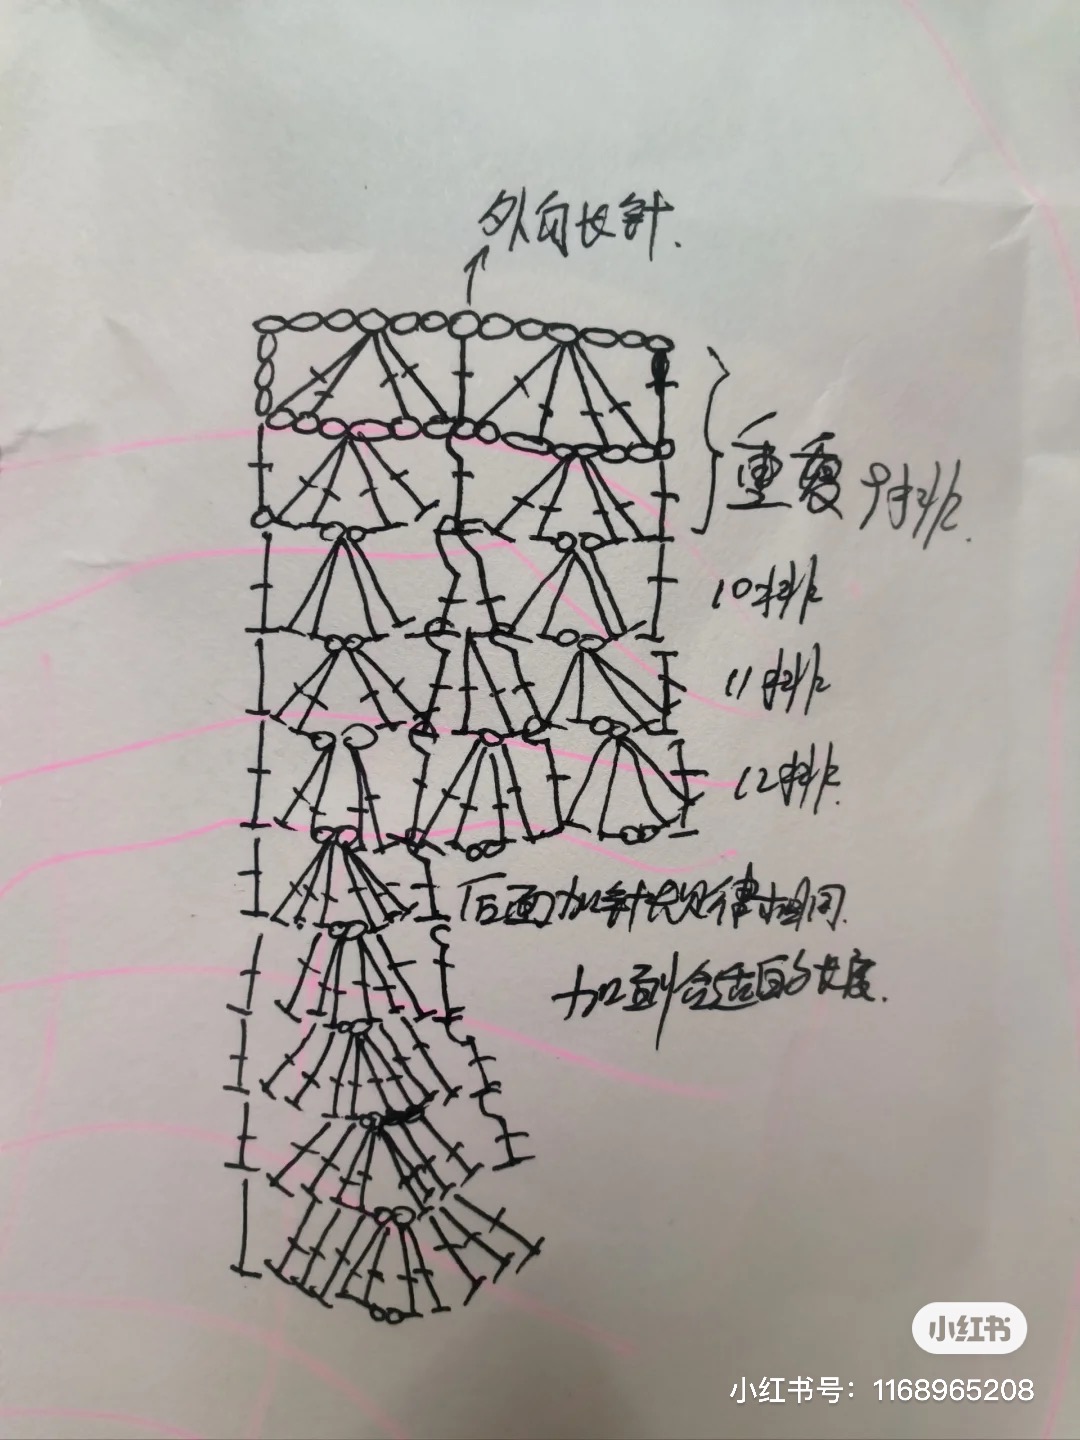 外向长针.
重复9排.
10排
11排
12排.
后面加针规律相同.
加到合适的长度.
小红书
小红书号：1168965208